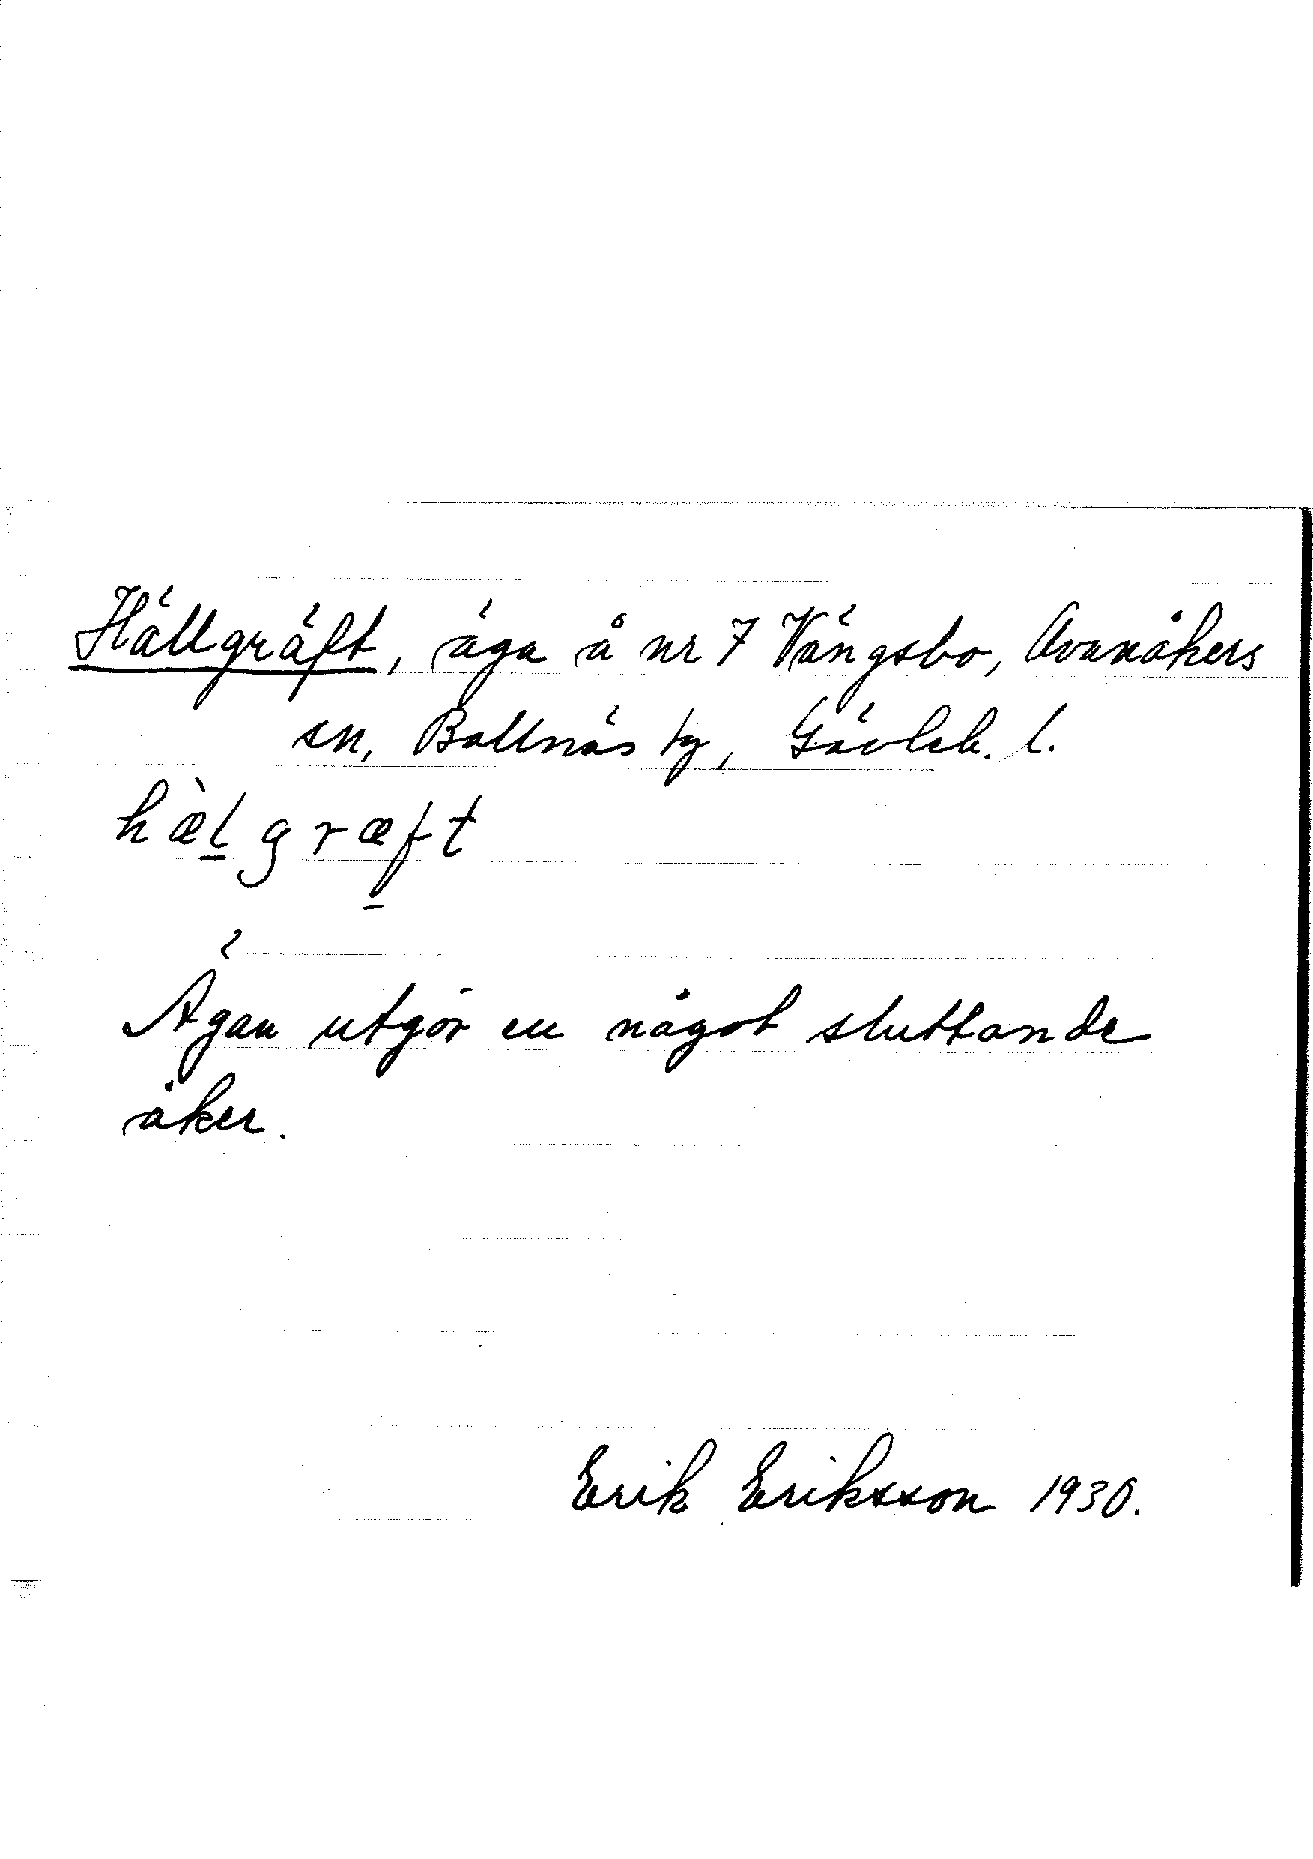 Hällgräft, äga å nr 7 Vängsbo, Ovanåkers
sn, Bollnäs tg, Gävleb. l.
hæ̀l̠græf̠t
Ägan utgör en något sluttande
åker.
Erik Eriksson 1930.